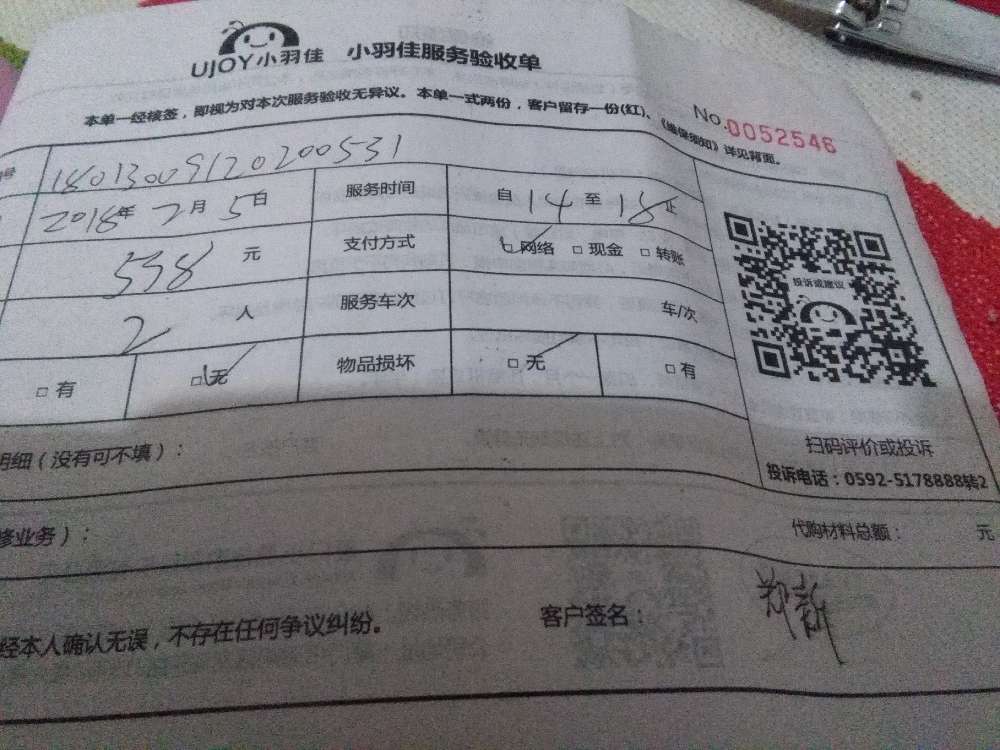 UJOY小羽佳 小羽佳服务验收单
本单一经核签，即视为对本次服务验收无异议。本单一式两份，客户留存一份(红)、《维保须知》详见背面。
No.0052546
号 18013009120200531
2018年 2月 5日 服务时间 自 14 至 18 止
598 元 支付方式 □ 网络 □ 现金 □ 转账
2 人 服务车次 车/次
□ 有 □ 无 物品损坏 □ 无 □ 有
投诉或建议
扫码评价或投诉
投诉电话：0592-5178888转2
明细（没有可不填）：
修业务）： 代购材料总额： 元
经本人确认无误，不存在任何争议纠纷。 客户签名： 郑新